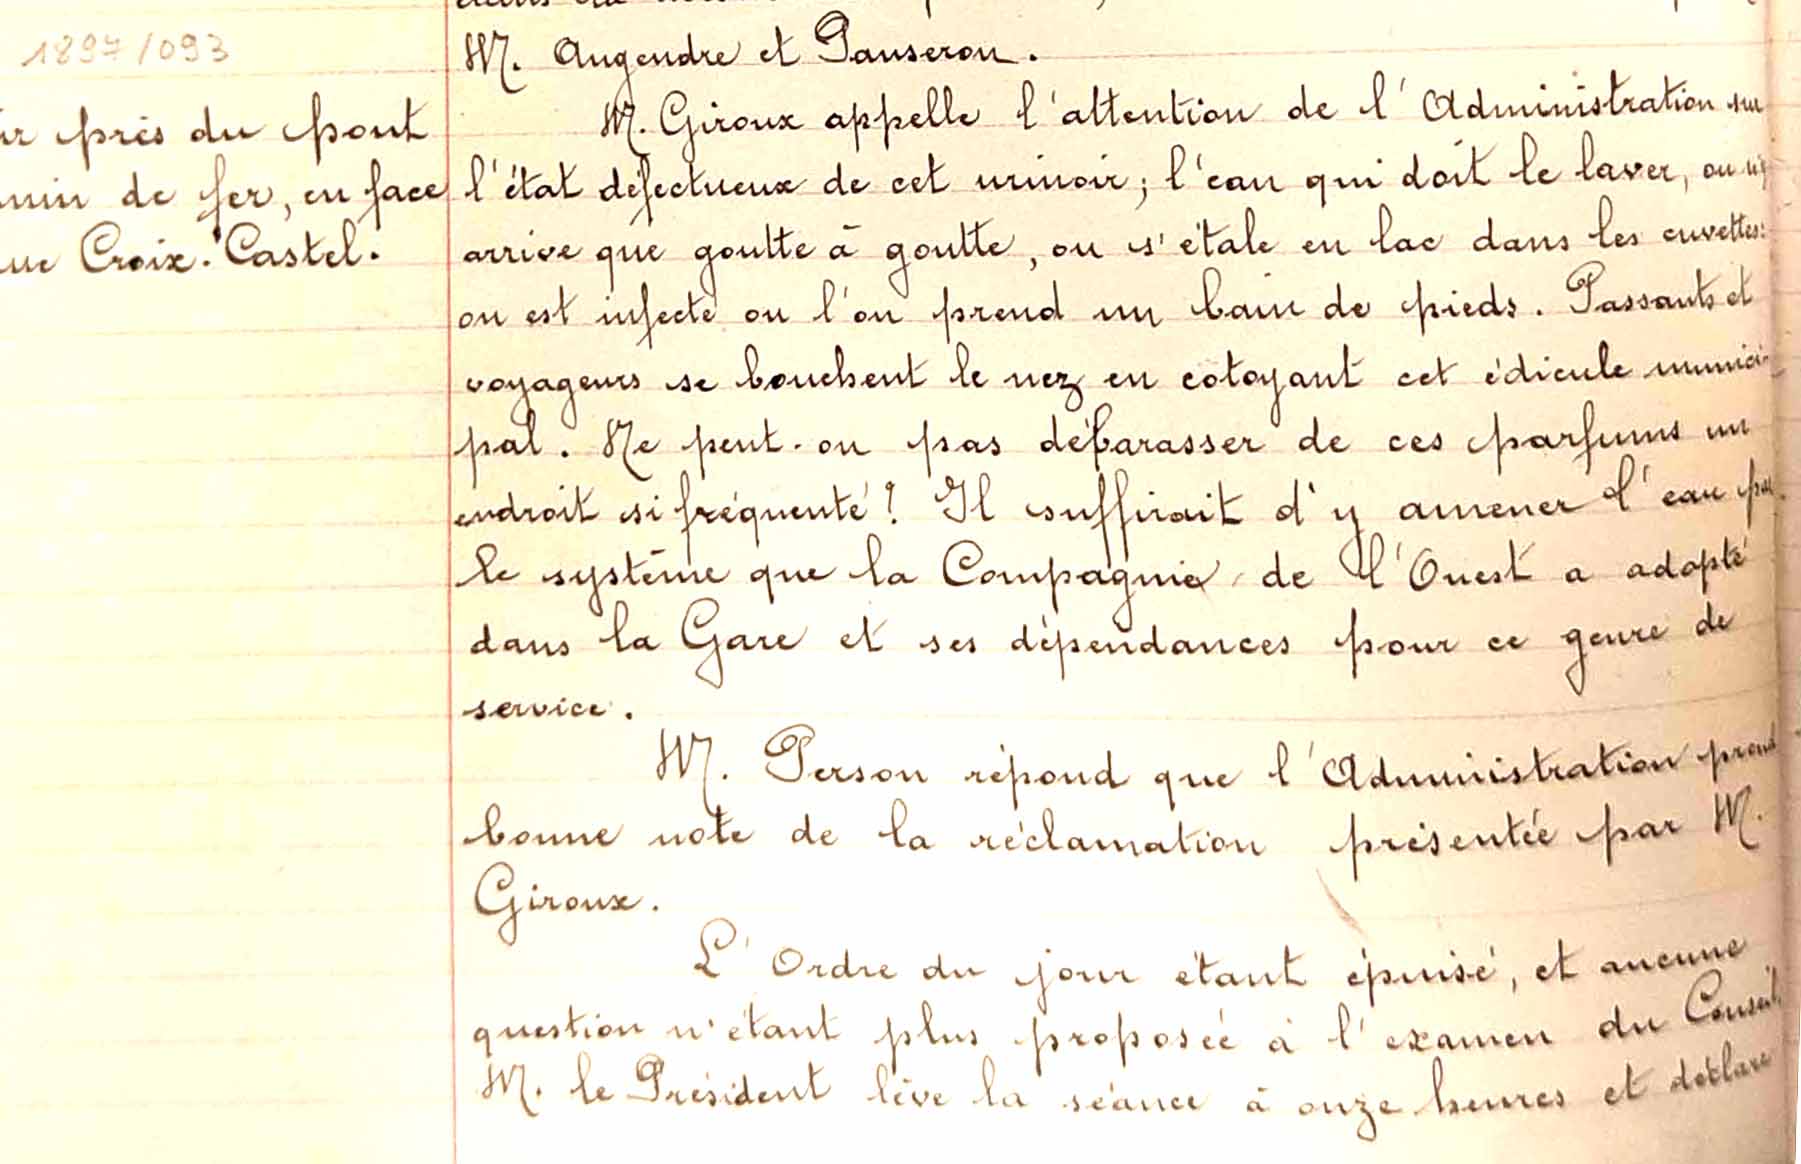 1897/093
près du pont
de fer, en face
Croix-Castel.
M. Augendre et Panseron.
M. Giroux appelle l'attention de l'Administration sur
l'état défectueux de cet urinoir; l'eau qui doit le laver, ou n'y
arrive que goutte à goutte, ou s'étale en lac dans les cuvettes:
on est infecté ou l'on prend un bain de pieds. Passants et
voyageurs se bouchent le nez en cotoyant cet édicule munici-
pal. Ne peut-on pas débarasser de ces parfums un
endroit si fréquenté? Il suffirait d'y amener l'eau par
le système que la Compagnie de l'Ouest a adopté
dans la Gare et ses dépendances pour ce genre de
service.
M. Person répond que l'Administration prend
bonne note de la réclamation présentée par M.
Giroux.
L'Ordre du jour étant épuisé, et aucune
question n'étant plus proposée à l'examen du Conseil,
M. le Président lève la séance à onze heures et déclare